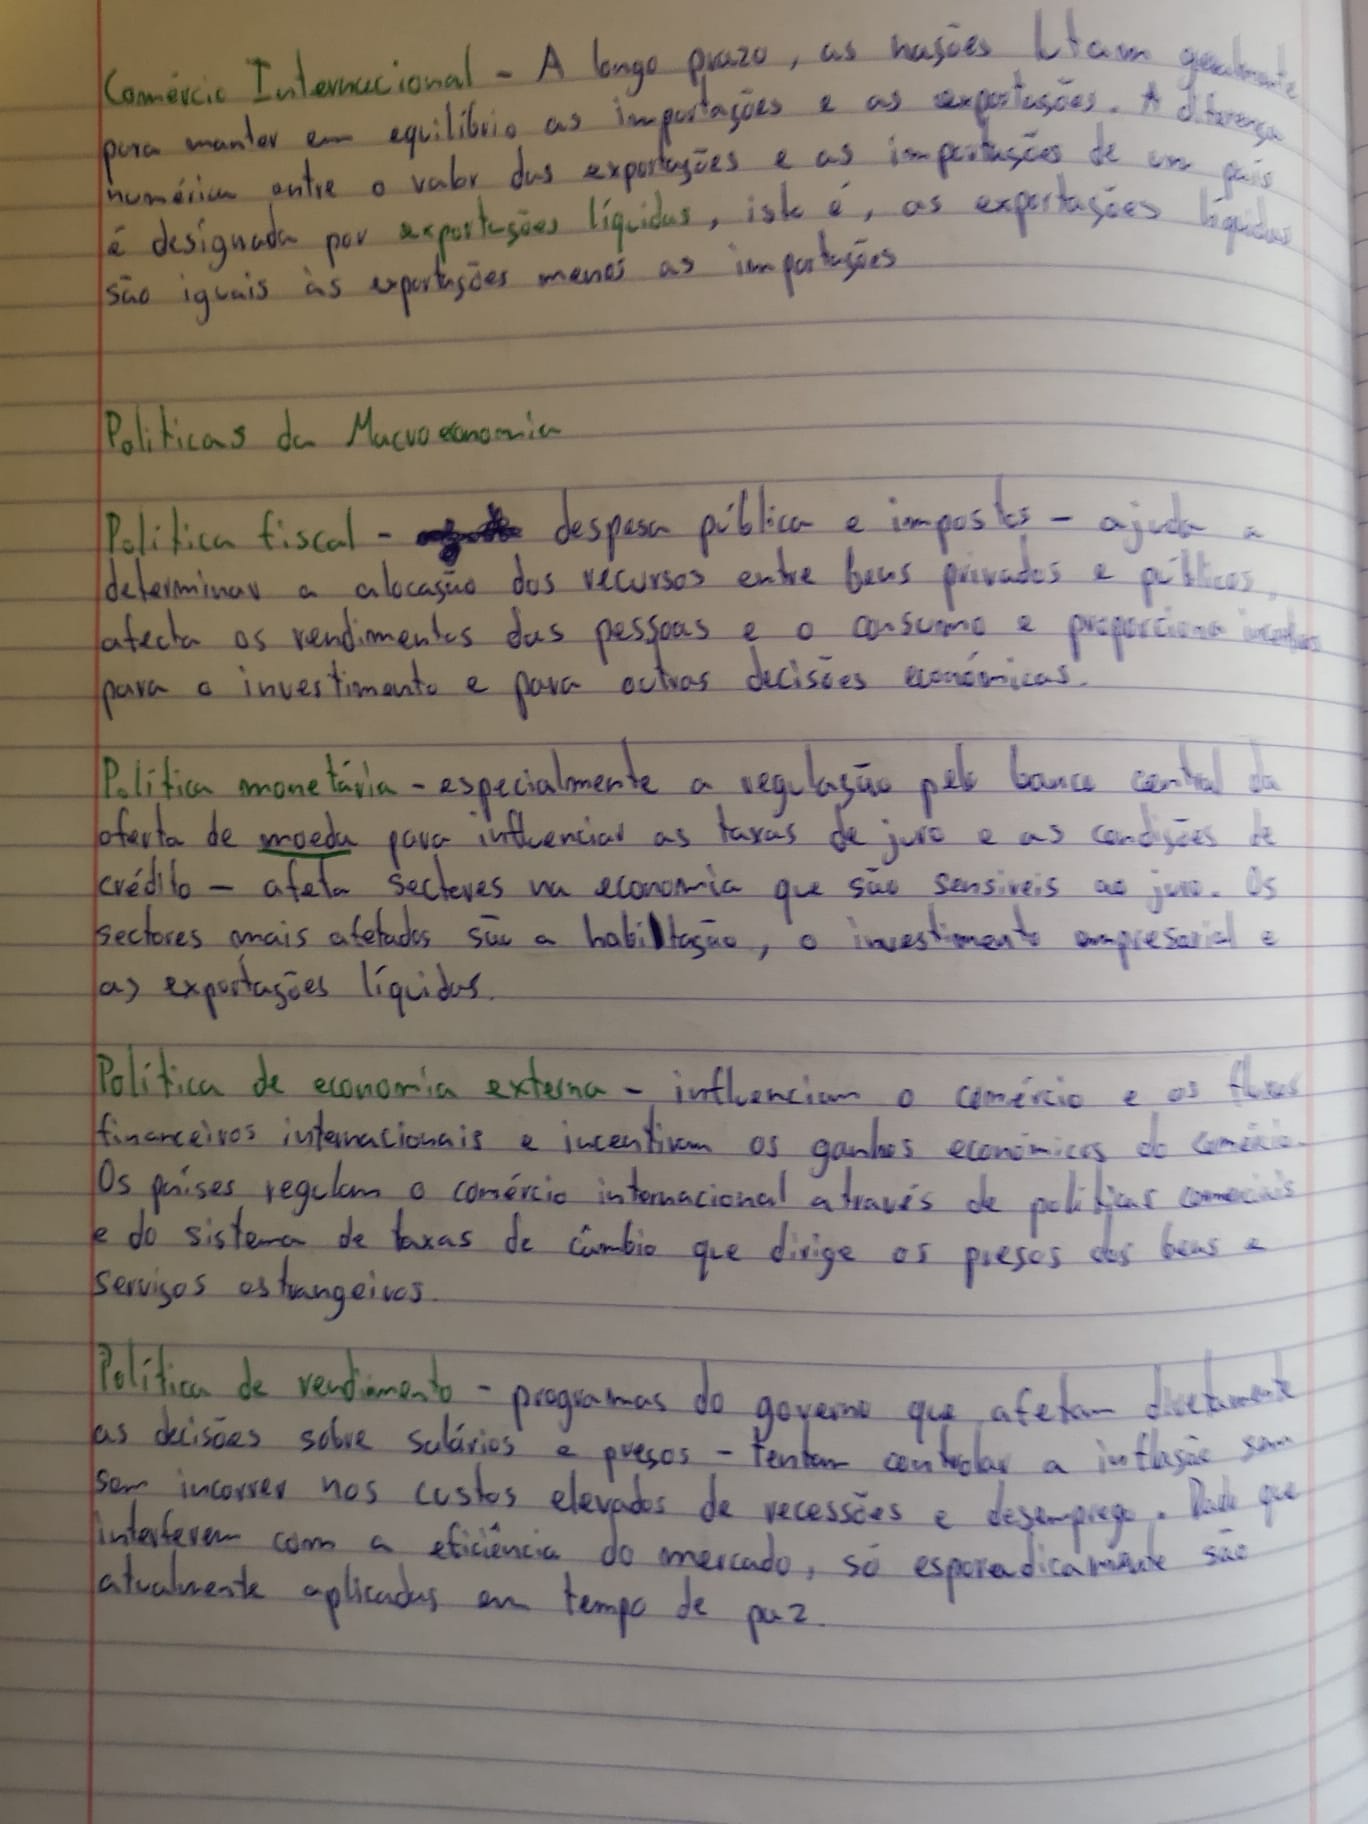 Comércio Internacional - A longo prazo, as nações lutam geralmente
para manter em equilíbrio as importações e as exportações. A diferença
numérica entre o valor das exportações e as importações de um país
é designada por exportações líquidas, isto é, as exportações líquidas
são iguais às exportações menos as importações
Politicas da Macroeconomia
Política fiscal - despesa pública e impostos - ajuda a
determinar a alocação dos recursos entre bens privados e públicos,
afecta os rendimentos das pessoas e o consumo e proporciona
para o investimento e para outras decisões económicas.
Política monetária - especialmente a regulação pelo banco central da
oferta de moeda para influenciar as taxas de juro e as condições de
crédito - afeta sectores na economia que são sensiveis ao juro. Os
sectores mais afetados são a habitação, o investimento empresarial e
as exportações líquidas.
Política de economia externa - influenciam o comércio e os fluxos
financeiros internacionais e incentivam os ganhos económicos do comércio.
Os países regulam o comércio internacional através de politicas comerciais
e do sistema de taxas de câmbio que dirige os preços dos bens e
serviços estrangeiros.
Política de rendimento - programas do governo que afetam diretamente
as decisões sobre salários e preços - tentam controlar a inflação sem
sem incorrer nos custos elevados de recessões e desemprego. Dado que
interferem com a eficiência do mercado, só esporadicamente são
atualmente aplicadas em tempo de paz.